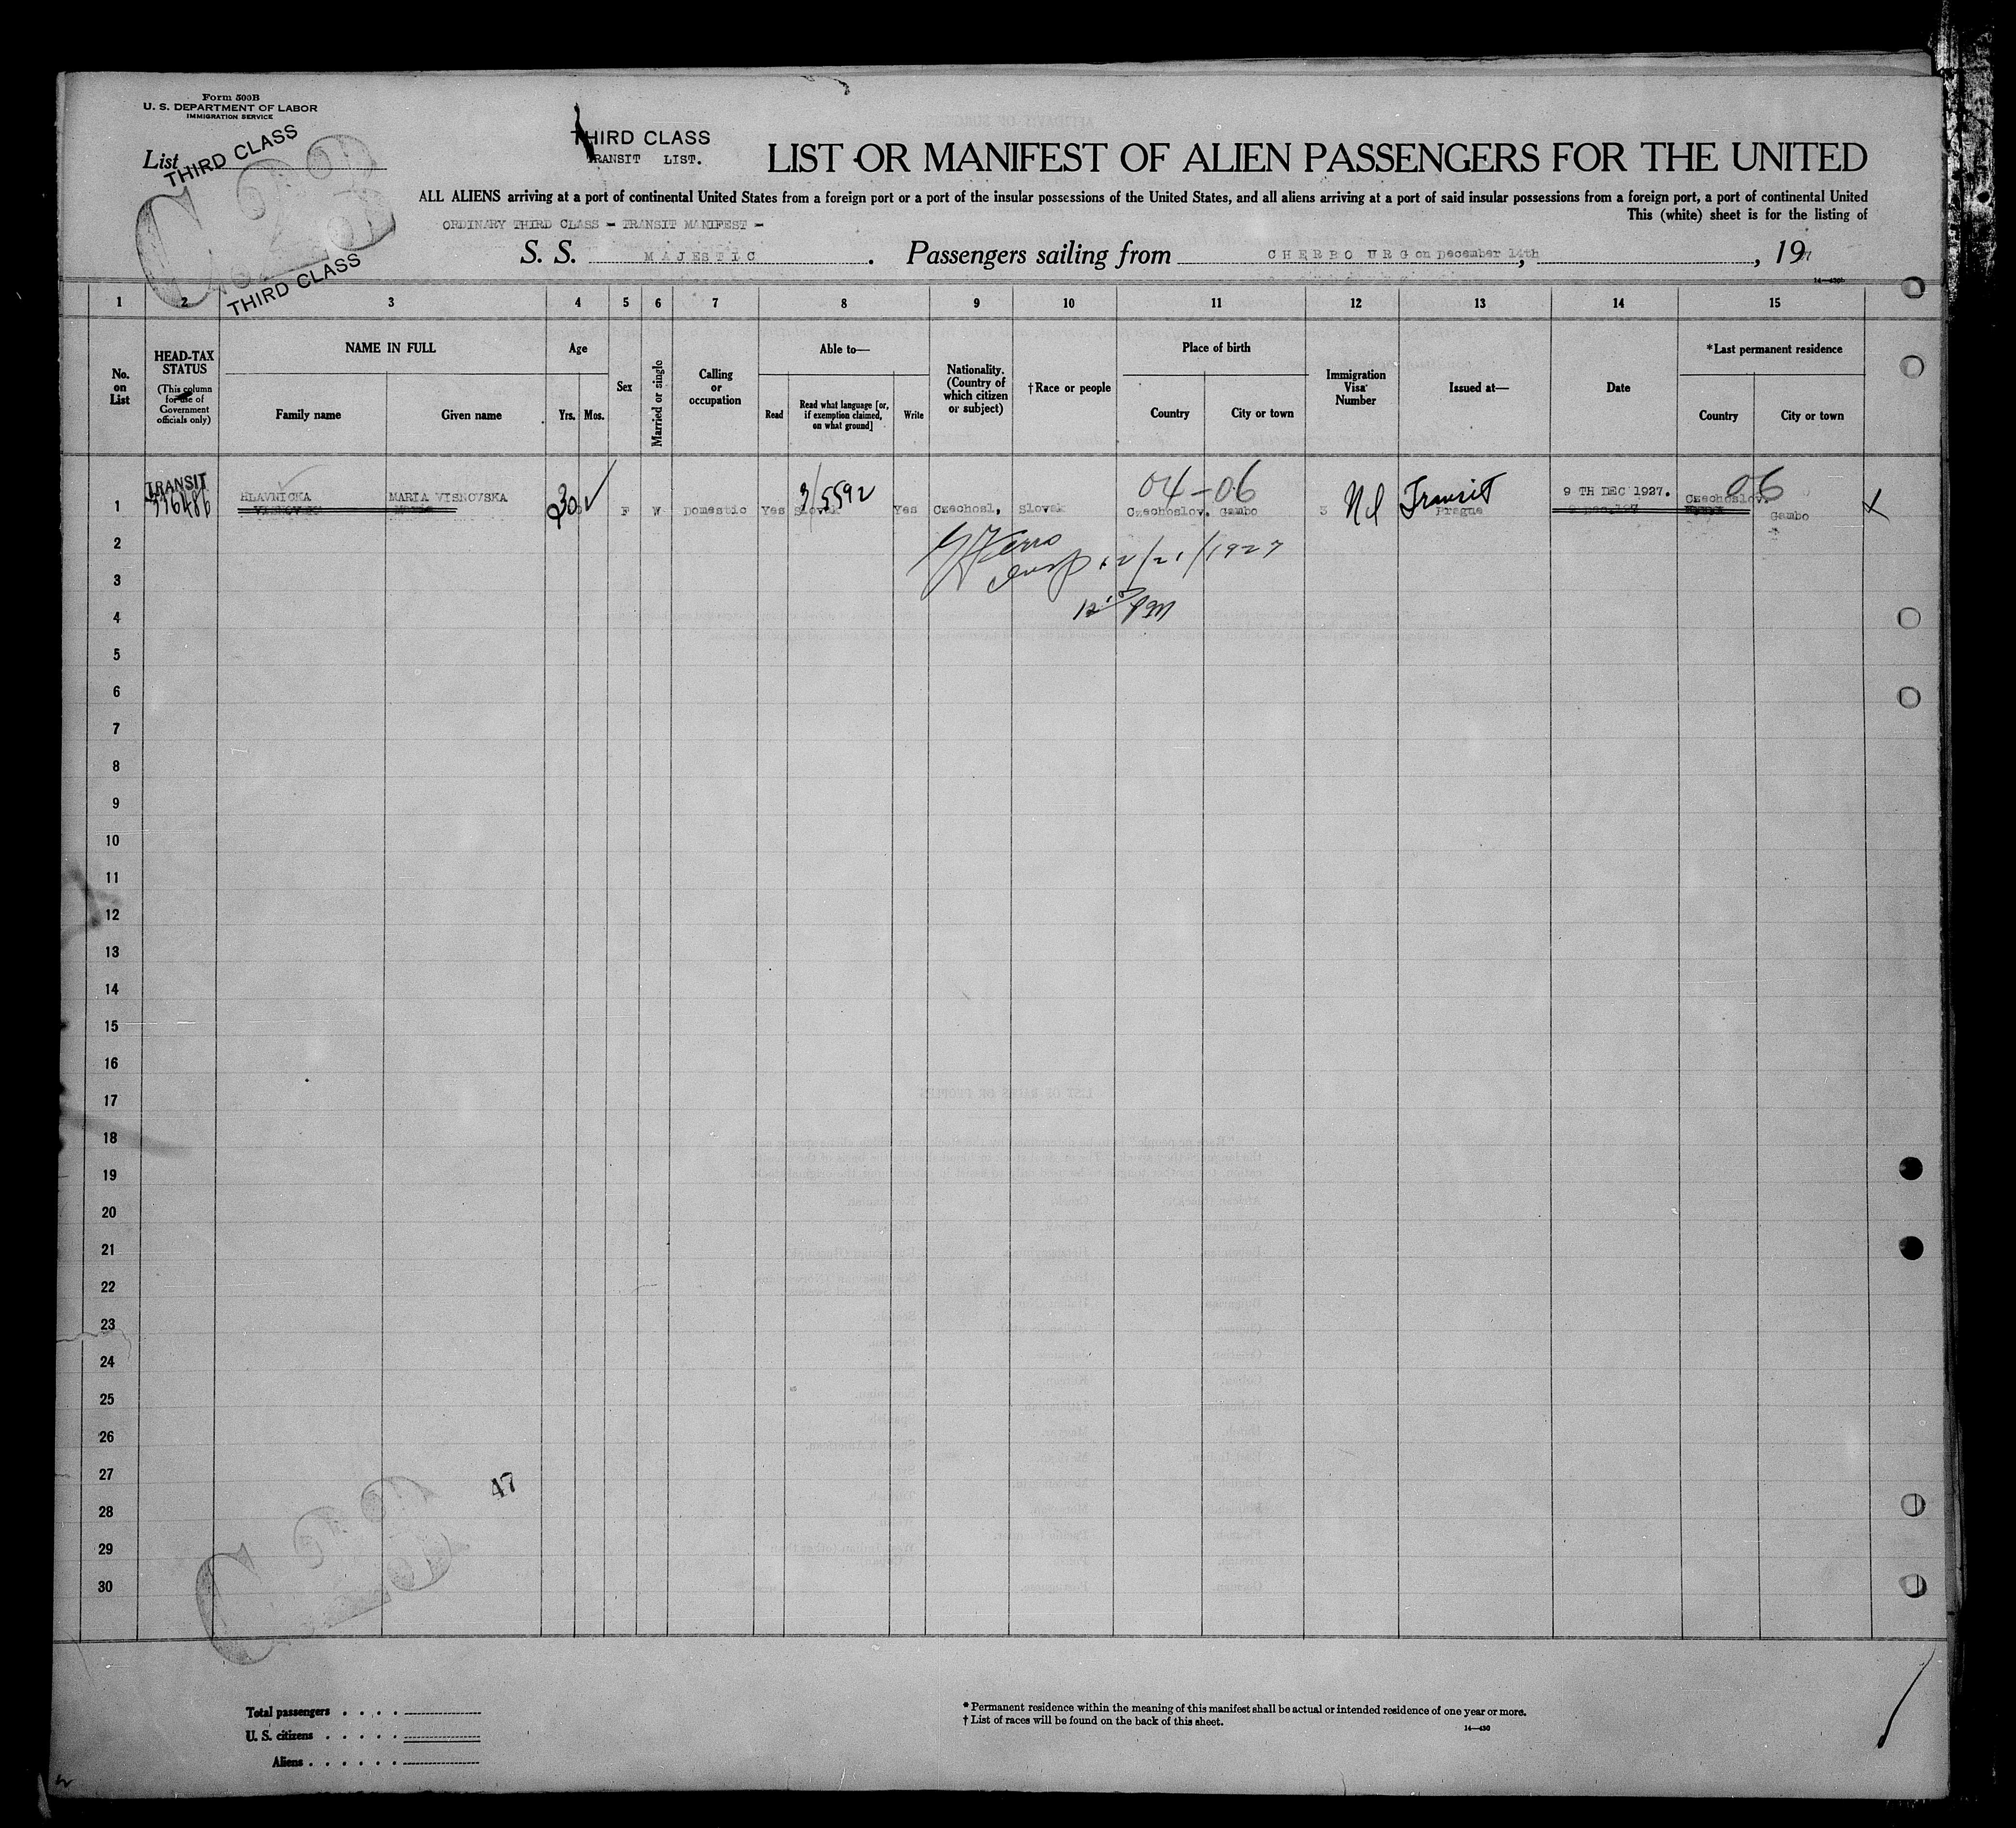 Form 500B
U. S. DEPARTMENT OF LABOR
IMMIGRATION SERVICE
List
THIRD CLASS
THIRD CLASS
TRANSIT LIST.
LIST OR MANIFEST OF ALIEN PASSENGERS FOR THE UNITED
ALL ALIENS arriving at a port of continental United States from a foreign port or a port of the insular possessions of the United States, and all aliens arriving at a port of said insular possessions from a foreign port, a port of continental United
This (white) sheet is for the listing of
ORDINARY THIRD CLASS - TRANSIT MANIFEST -
S. S. MAJESTIC. Passengers sailing from CHERBOURG on December 14th, , 197
14—430b
THIRD CLASS
1 2 3 4 5 6 7 8 9 10 11 12 13 14 15
No. on List
HEAD-TAX STATUS
(This column for use of Government officials only)
NAME IN FULL
Family name
Given name
Age
Yrs. Mos.
Sex
Married or single
Calling or occupation
Able to—
Read
Read what language [or, if exemption claimed, on what ground]
Write
Nationality. (Country of which citizen or subject)
†Race or people
Place of birth
Country
City or town
Immigration Visa Number
Issued at—
Date
*Last permanent residence
Country
City or town
TRANSIT
336486
3/5592
04-06
06
9 TH DEC 1927.
1 HLAVNICKA MARIA VISNOVSKA 30 F W Domestic Yes Slovak Yes Czechosl. Slovak Czechoslov. Gambo 3 Nl Transit Prague Czechoslov. Gambo X
2
Insp 12/21/1927
3
4
PM
5
6
7
8
9
10
11
12
13
14
15
16
17
18
19
20
21
22
23
24
25
26
27
47
28
29
30
Total passengers . . . .
U. S. citizens . . . . .
Aliens . . . . . .
* Permanent residence within the meaning of this manifest shall be actual or intended residence of one year or more.
† List of races will be found on the back of this sheet.
14—430